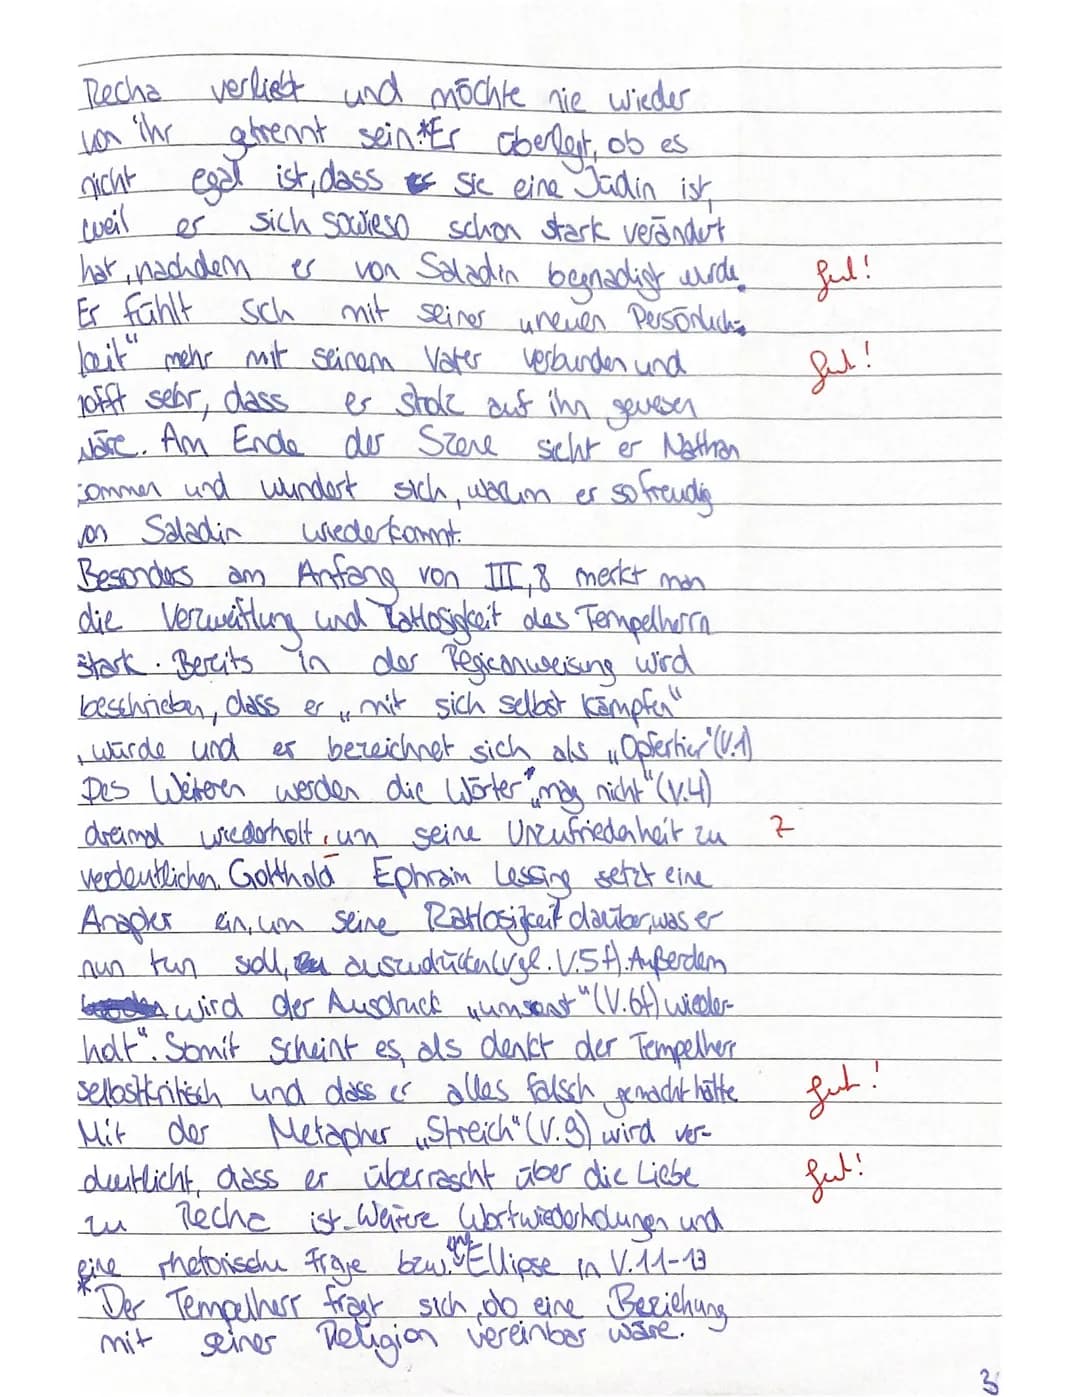 Recha verliebt und möchte nie wieder
von ihr getrennt sein.*Er überlegt, ob es
nicht egal ist, dass sie eine Jüdin ist,
weil er sich sowieso schon stark verändert
hat, nachdem er von Saladin begnadigt wurde.
gut!
Er fühlt sich mit seiner „neuen Persönlich-
keit" mehr mit seinem Vater verbunden und
gut!
hofft sehr, dass er stolz auf ihn gewesen
wäre. Am Ende der Szene sieht er Nathan
kommen und wundert sich, warum er so freudig
von Saladin wiederkommt.
Besonders am Anfang von III,8 merkt man
die Verzweiflung und Ratlosigkeit des Tempelherrn
stark. Bereits in der Regieanweisung wird
beschrieben, dass er „mit sich selbst kämpfen"
würde und er bezeichnet sich als „Opfertier"(V.1)
Des Weiteren werden die Wörter „mag nicht"(V.4)
dreimal wiederholt, um seine Unzufriedenheit zu
Z
verdeutlichen. Gotthold Ephraim Lessing setzt eine
Anapher ein, um seine Ratlosigkeit darüber, was er
nun tun soll, auszudrücken(vgl. V.5f). Außerdem
wird der Ausdruck „umsonst"(V.6f) wieder-
holt". Somit scheint es, als denkt der Tempelherr
selbstkritisch und dass er alles falsch gemacht hätte
gut!
Mit der Metapher „Streich"(V.9) wird ver-
deutlicht, dass er überrascht über die Liebe
gut!
zu Recha ist. Weitere Wortwiederholungen und
eine rhetorische Frage bzw. Ellipse in V.11-13
*Der Tempelherr fragt sich, ob eine Beziehung
mit seiner Religion vereinbar wäre.
3